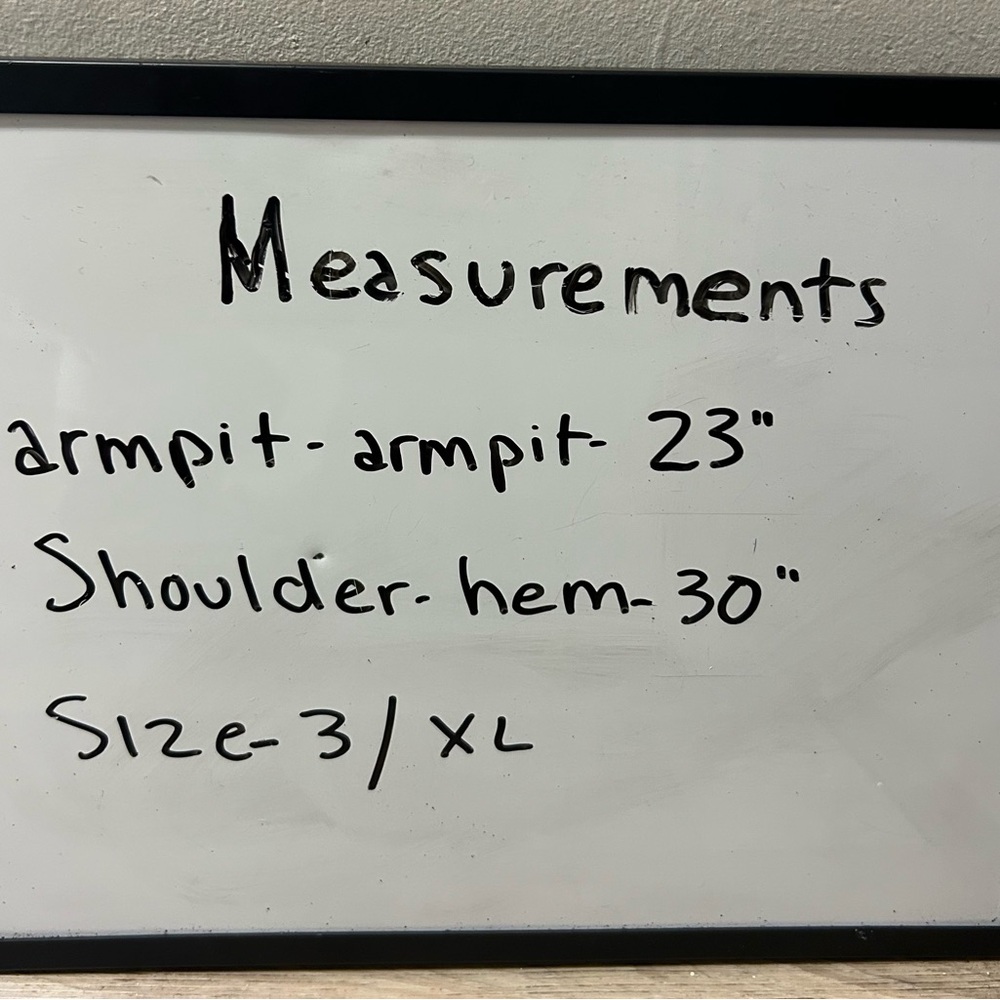 Measurements
armpit - armpit - 23"
Shoulder - hem - 30"
Size - 3 / XL